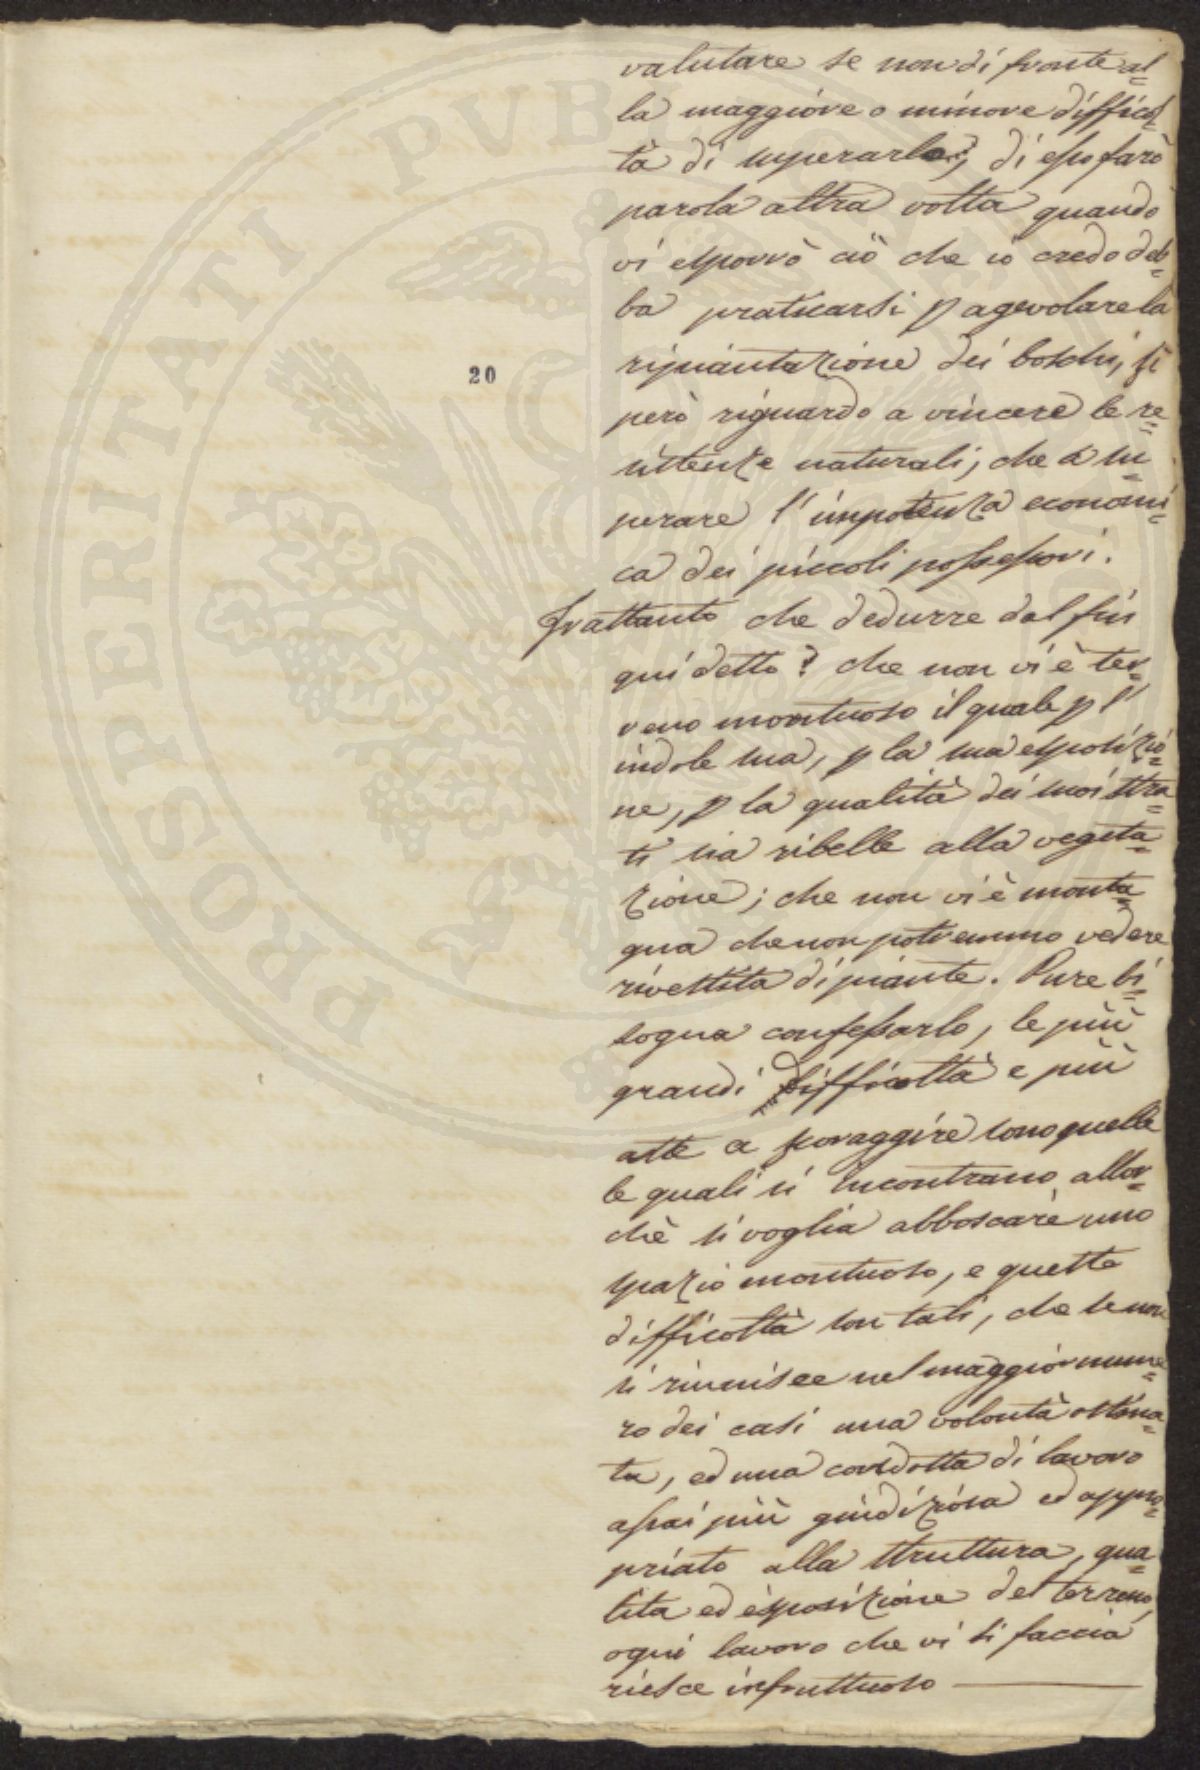 valutare se non di fronte al=
la maggiore o minore difficol=
tà di superarlo; di esso farò
parola altra volta quando
vi esporrò ciò che io credo deb=
ba praticarsi p agevolare la
ripiantazione dei boschi, sì
20
però riguardo a vincere le re=
sistenze naturali, che a su=
perare l'impotenza economi=
ca dei piccoli possessori.
Frattanto che dedurre dal fin
quì detto? che non vi è ter=
reno montuoso il quale p l'
indole sua, p la sua esposizio=
ne, p la qualità dei suoi stra=
ti sia ribelle alla vegeta=
zione; che non vi è monta=
gna che non potremmo vedere
rivestita di piante. Pure bi=
sogna confessarlo, le più
grandi difficoltà e più
atte a scoraggire sono quelle
le quali si incontrano allor=
chè si voglia abboscare uno
spazio montuoso, e queste
difficoltà son tali, che se non
si riunisce nel maggior nume=
ro dei casi una volontà ostina=
ta, ed una condotta di lavoro
assai più giudiziosa ed appro=
priato alla struttura, qua=
lita ed esposizione del terreno,
ogni lavoro che vi si faccia
riesce infruttuoso
PROSPERITATI PVBLICAE